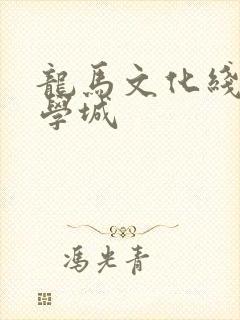 龍馬文化綫
學城
馮光青